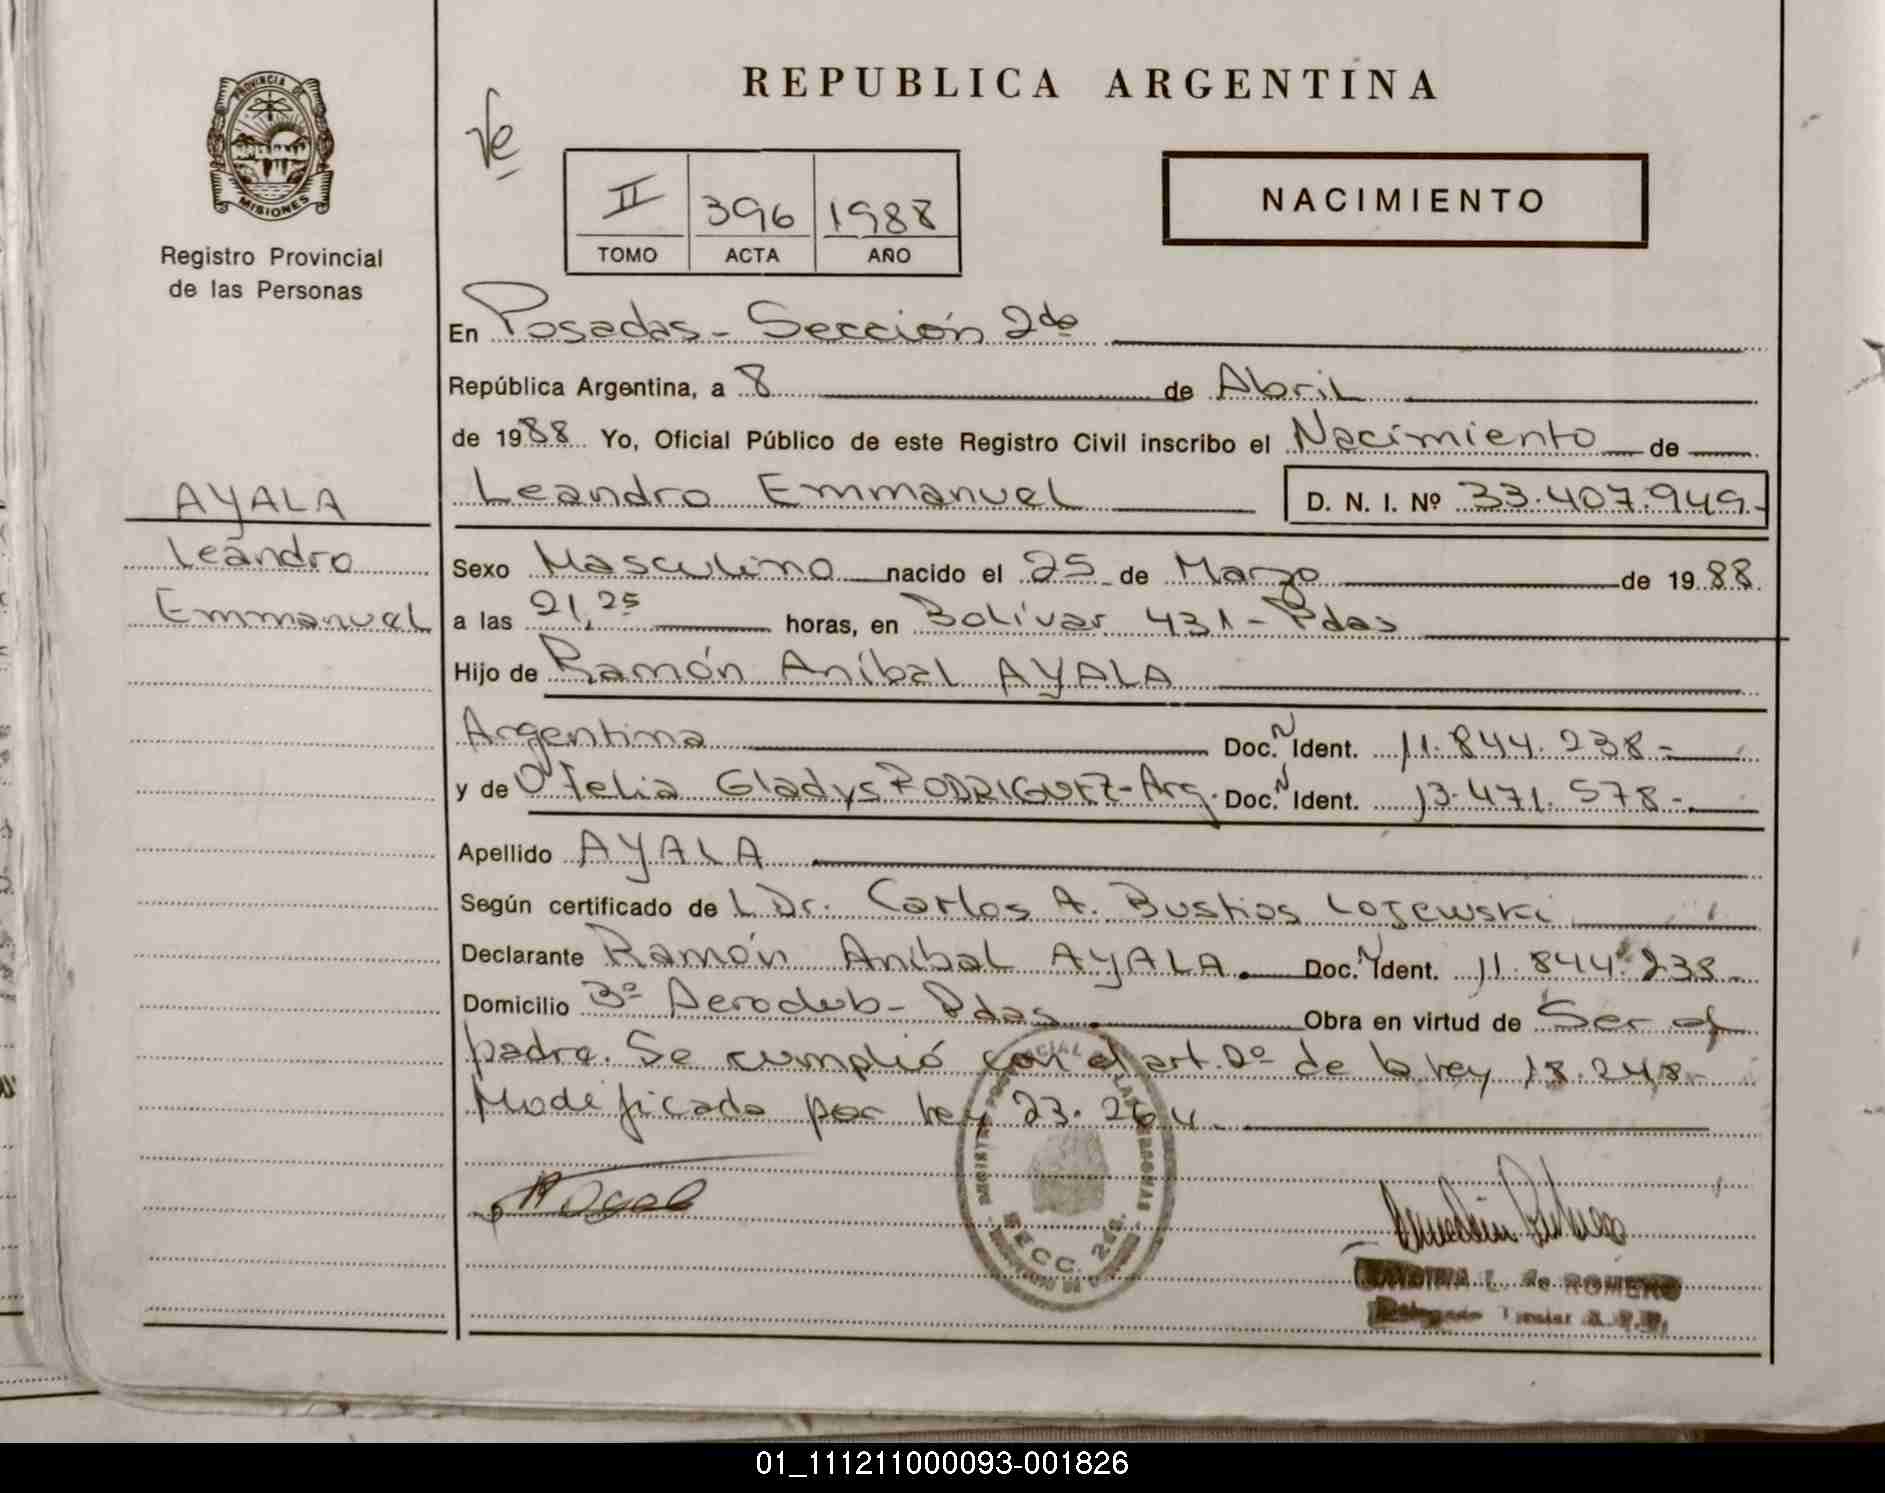 REPUBLICA ARGENTINA
PROVINCIA DE
MISIONES
Registro Provincial
de las Personas
II 396 1988
TOMO ACTA AÑO
NACIMIENTO
En Posadas - Sección 2da
República Argentina, a 8 de Abril
de 1988 Yo, Oficial Público de este Registro Civil inscribo el Nacimiento de
AYALA
Leandro Emmanuel D. N. I. Nº 33.407.949.-
Leandro
Sexo Masculino nacido el 25 de Marzo de 1988.
Emmanuel
a las 21,25 horas, en Bolívar 431 - Pdas
Hijo de Ramón Aníbal AYALA
Argentina Doc. N Ident. 11.844.238.-
y de Ofelia Gladys RODRIGUEZ - Arg. Doc. N Ident. 13.471.578.-
Apellido AYALA
Según certificado de L Dr. Carlos A. Bustios Lojewski
Declarante Ramón Aníbal AYALA. Doc. N Ident. 11.844.238.-
Domicilio Bº Aeroclub - Pdas Obra en virtud de Ser el
padre. Se cumplió con el art. 2º de la ley 18.248.-
Modificada por ley 23.264.
SECC. 2da.
L. de ROMERO
Titular R.P.P.
01_111211000093-001826